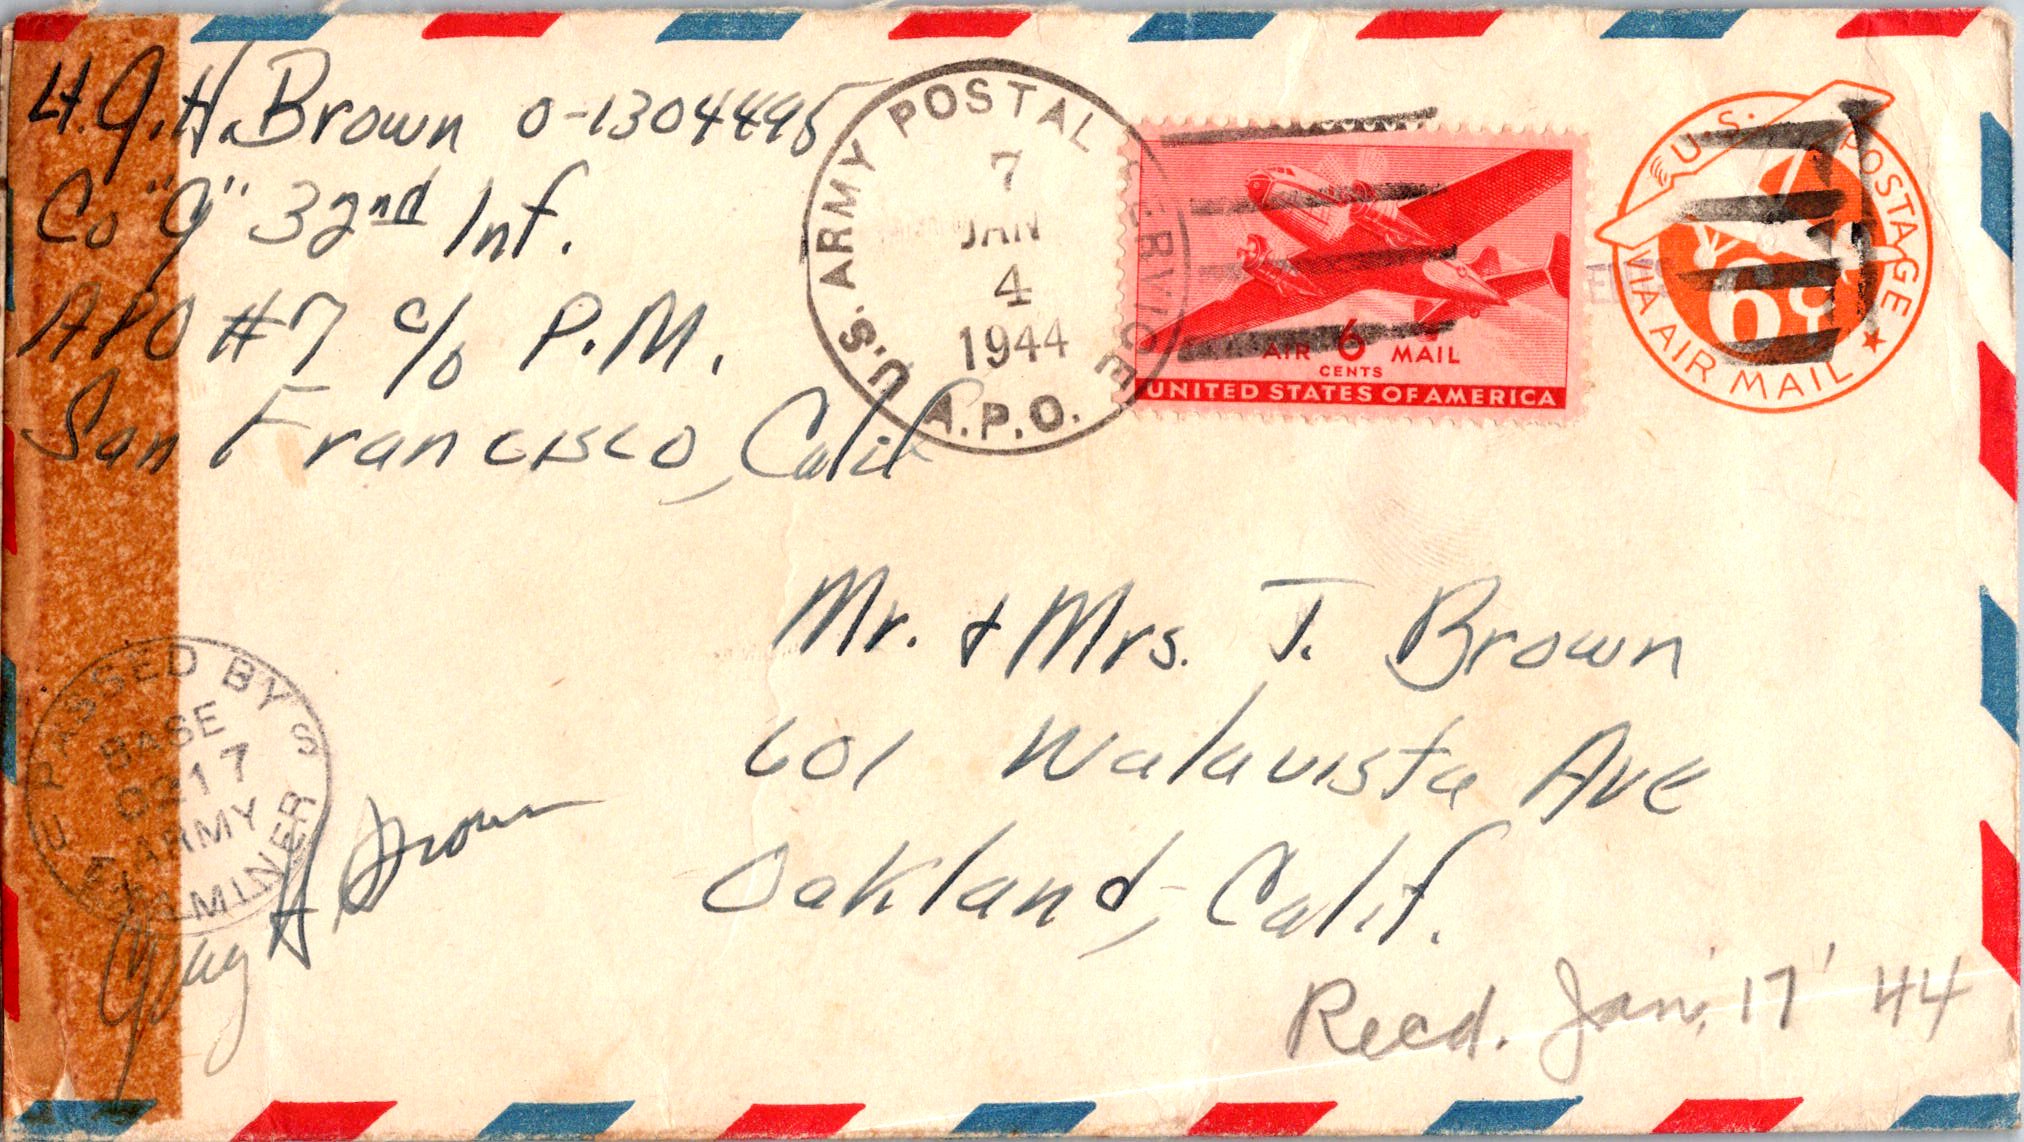 Lt. G. H. Brown O-1304495
Co "G" 32nd Inf.
APO #7 c/o P.M.
San Francisco, Calif
U.S. ARMY POSTAL SERVICE
7
JAN
4
1944
A.P.O.
AIR 6 MAIL
CENTS
UNITED STATES OF AMERICA
U.S. POSTAGE
6¢
VIA AIR MAIL
Mr. & Mrs. J. Brown
601 Walavista Ave
Oakland, Calif.
PASSED BY
BASE
0217
ARMY
EXAMINER
H Brown
Recd. Jan. 17 '44